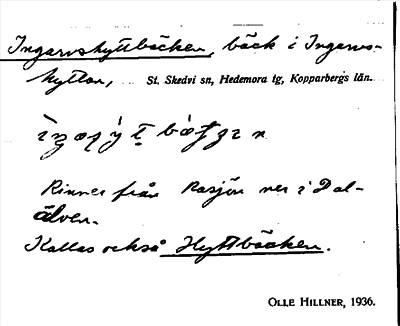 Ingarvshyttbäcken, bäck i Ingarvs-
hyttan, St. Skedvi sn, Hedemora tg, Kopparbergs län.
Rinner från Rasjön ner i Dal-
älven.
Kallas också Hyttbäcken.
OLLE HILLNER, 1936.